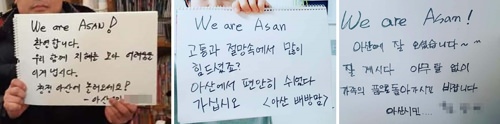 We are ASAN!
환영합니다.
우리 함께 지혜를 모아 어려움을
이겨냅시다.
청정 아산에 놀러오세요?
- 아산
We are Asan
고통과 절망속에서 많이
힘드셨죠?
아산에서 편안히 쉬었다
가십시오 <아산 배방맘>
We are Asan!
아산에 잘 오셨습니다~~
잘 계시다 아무 탈 없이
가족의 품으로 돌아가시길 바랍니다
아산시민